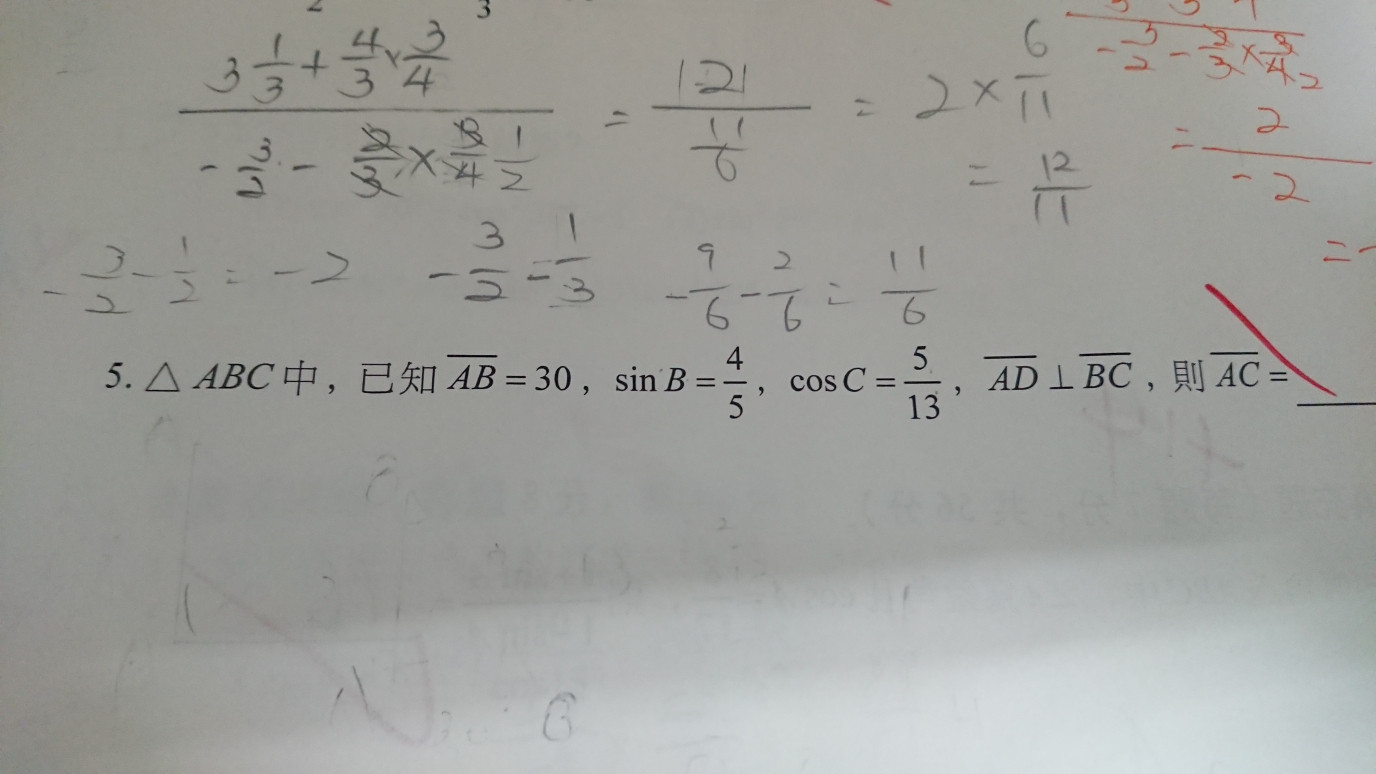 2 3
3 1/3 + 4/3 × 3/4 / - 3/2 - 2/3 × 3/4 1/2 = 121 / 11/6 = 2 × 6/11
= 12/11
- 3/2 - 2/3 × 3/4 2
= 2 / - 2
= -
- 3/2 - 1/2 = - 2 - 3/2 = 1/3 - 9/6 - 2/6 = 11/6
5. △ ABC 中，已知 AB = 30，sin B = 4/5，cos C = 5/13，AD ⊥ BC，則 AC = ____
B